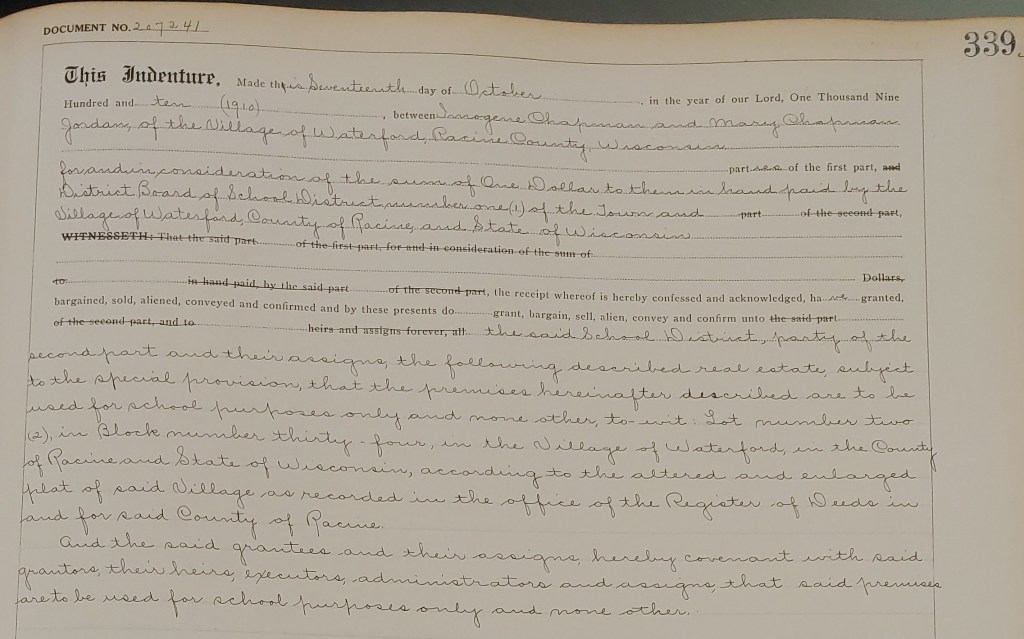 DOCUMENT NO. 207241
339
This Indenture, Made this Seventeenth day of October, in the year of our Lord, One Thousand Nine
Hundred and ten (1910), between Imogene Chapman and Mary Chapman
Jordan, of the Village of Waterford, Racine County, Wisconsin
part ies of the first part, and
for and in consideration of the sum of One Dollar to them in hand paid by the
District Board of School District, number one (1) of the Town and part of the second part,
Village of Waterford, County of Racine, and State of Wisconsin
WITNESSETH: That the said part of the first part, for and in consideration of the sum of
Dollars,
to in hand paid, by the said part of the second part, the receipt whereof is hereby confessed and acknowledged, ha ve granted,
bargained, sold, aliened, conveyed and confirmed and by these presents do grant, bargain, sell, alien, convey and confirm unto the said part
of the second part, and to heirs and assigns forever, all the said School District, party of the
second part and their assigns, the following described real estate, subject
to the special provision, that the premises hereinafter described are to be
used for school purposes only and none other, to-wit: Lot number two
(2), in Block number thirty-four, in the Village of Waterford, in the County
of Racine and State of Wisconsin, according to the altered and enlarged
plat of said Village as recorded in the office of the Register of Deeds in
and for said County of Racine.
And the said grantees and their assigns, hereby covenant with said
grantors, their heirs, executors, administrators and assigns, that said premises
are to be used for school purposes only and none other.